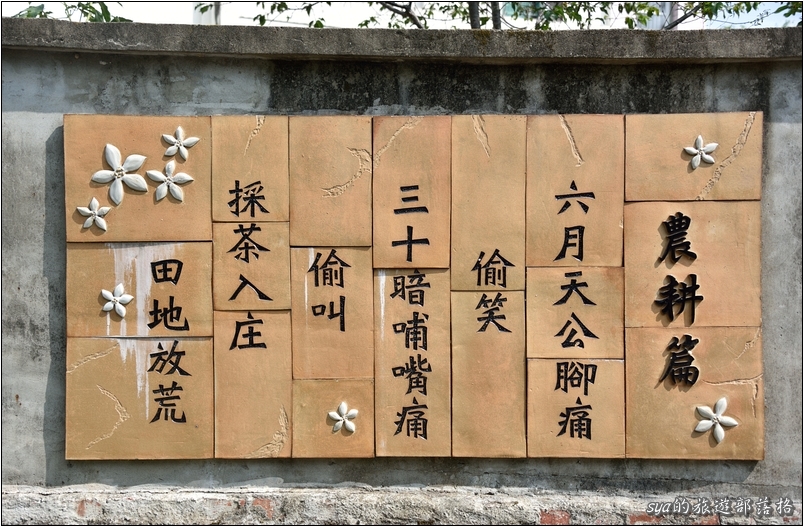 農耕篇
六月天公腳痛
偷笑
三十暗哺嘴痛
偷叫
採茶入庄
田地放荒
sya的旅遊部落格